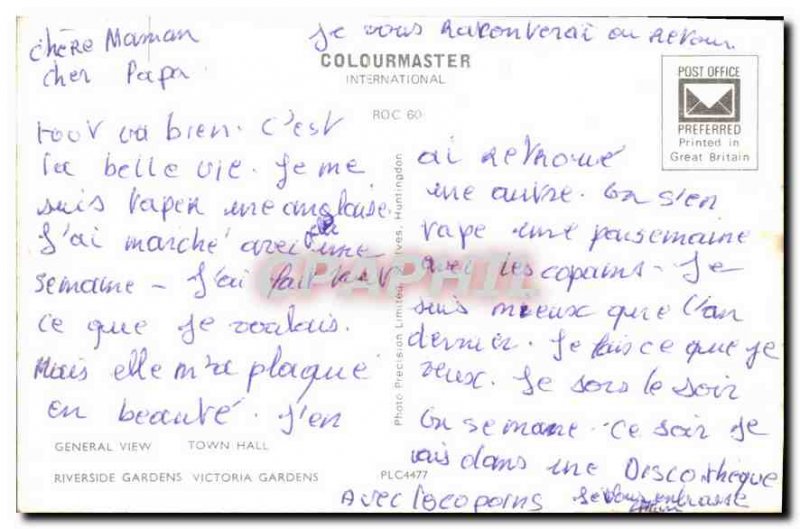 chère Maman
cher Papa
Je vous raconverai au retour.
COLOURMASTER
INTERNATIONAL
ROC 60
POST OFFICE
PREFERRED
Printed in
Great Britain
tout va bien. C'est
la belle vie. Je me
suis taper une anglaise.
J'ai marché avec elle une
semaine - J'ai fait
ce que je voulais.
Mais elle m'a plaqué
en beauté. J'en
ai retroué
une autre. On s'en
tape une par semaine
avec les copains - Je
suis mieux que l'an
dernier. Je fais ce que je
veux. Je sors le soir
en semane. Ce soir je
vais dans une Discothèque
Avec copains
Je vous embrasse
GENERAL VIEW TOWN HALL
RIVERSIDE GARDENS VICTORIA GARDENS
PLC4477
Photo Precision Limited, St. Ives, Huntingdon
CPAPHIL